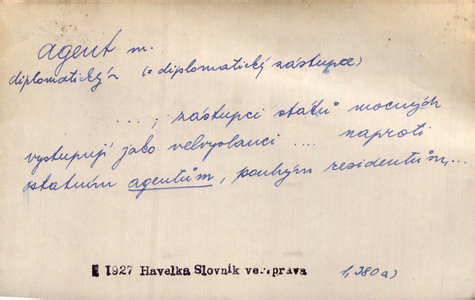 agent m.
diplomatický (= diplomatický zástupce)
...., zástupci států mocných
vystupují jako velvyslanci .... naproti
ostatním agentům, pouhým residentům,...
1927 Havelka Slovník veř.práva
1,380a)